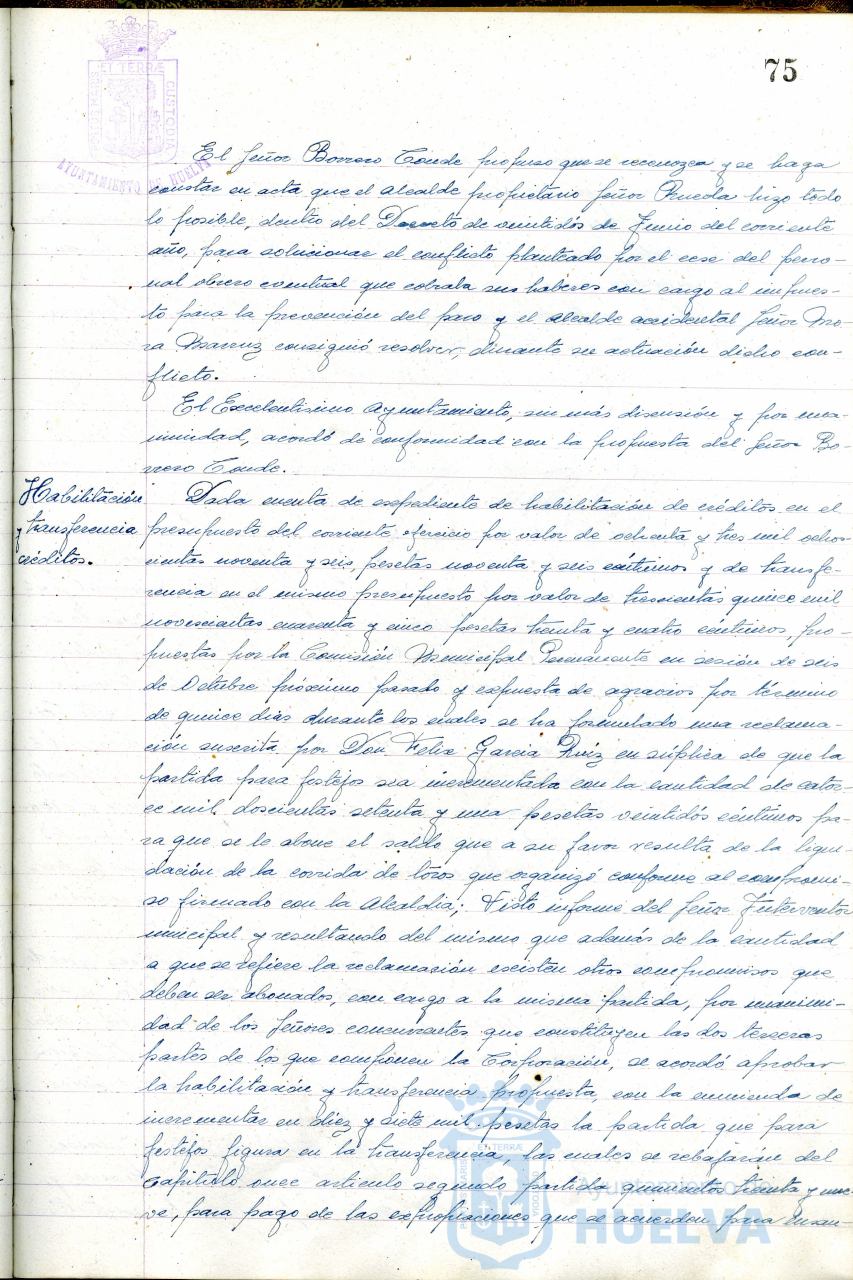 75
ET TERRÆ
CUSTODIA
AYUNTAMIENTO DE HUELVA
El Señor Borrero Conde propuso que se reconozca y se haga
constar en acta que el Alcalde propietario Señor Rueda hizo todo
lo posible, dentro del Decreto de veintidós de Junio del corriente
año, para solucionar el conflicto planteado por el cese del perso-
nal obrero eventual que cobraba sus haberes con cargo al impues-
to para la prevención del paro y el Alcalde accidental Señor Mo-
ra consiguió resolver, durante su actuación dicho con-
flicto.
El Excelentísimo Ayuntamiento, sin más discusión y por una-
nimidad, acordó de conformidad con la propuesta del Señor Bo-
rrero Conde.
Habilitación
y transferencia
créditos.
Dada cuenta de expediente de habilitación de créditos en el
presupuesto del corriente ejercicio por valor de ochenta y tres mil ochos-
cientas noventa y seis pesetas noventa y seis céntimos y de transfe-
rencia en el mismo presupuesto por valor de trescientas quince mil
novescientas cuarenta y cinco pesetas treinta y cuatro céntimos, pro-
puestas por la Comisión Municipal Permanente en sesión de seis
de Octubre próximo pasado y expuesta de agracios por término
de quince días durante los cuales se ha formulado una reclama-
ción suscrita por Don Felix García Ruíz en súplica de que la
partida para festejos sea incrementada con la cantidad de cator-
ce mil doscientas setenta y una pesetas veintidós céntimos pa-
ra que se le abone el saldo que a su favor resulta de la liqui-
dación de la corrida de toros que organizó conforme al compromi-
so firmado con la Alcaldia; Visto informe del Señor Interventor
municipal y resultando del mismo que además de la cantidad
a que se refiere la reclamación existen otros compromisos que
deben ser abonados, con cargo a la misma partida, por unanimi-
dad de los Señores concurrentes que constituyen las dos terceras
partes de los que componen la Corporación, se acordó aprobar
la habilitación y transferencia propuesta, con la enmienda de
incrementar en diez y siete mil pesetas la partida que para
festejos figura en la transferencia, las cuales se rebajarán del
Capítulo once artículo segundo partida quinientos treinta y nue-
ve, para pago de las expropiaciones que se acuerden para ensan-
Ayuntamiento de
HUELVA